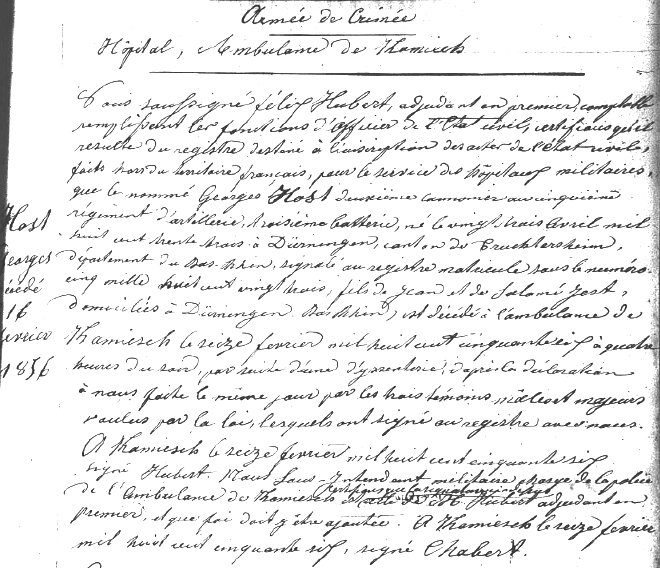 Armée de Crimée
Hôpital, Ambulance de Kamiesch
Nous soussigné félix Hubert, adjudant en premier, comptable
remplissant les fonctions d'officier de l'Etat civil, certifions qu'il
résulte du registre destiné à l'inscription des actes de l'état civil,
faits hors du territoire français, pour le service des hôpitaux militaires,
que le nommé Georges Host deuxième canonnier au cinquième
régiment d'artillerie, troisième batterie, né le vingt trois avril mil
huit cent trente trois à Dürningen, canton de Truchtersheim,
département du Bas-Rhin, signalé au registre matricule sous le numéro
cinq mille huit cent vingt trois, fils de Jean et de Salomé Jost,
domiciliés à Dürningen, Bas Rhin, est décédé à l'ambulance de
Kamiesch le seize fevrier mil huit cent cinquante six à quatre
heures du soir, par suite d'une dyssenterie, d'après la déclaration
à nous faite le même jour par les trois témoins mâles et majeurs
voulus par la loi, lesquels ont signé au registre avec nous.
A Kamiesch le seize fevrier mil huit cent cinquante six
signé Hubert. Nous Sous-Intendant militaire chargé de la police
de l'ambulance de Kamiesch Hubert adjudant en
premier, et que foi doit y être ajoutée. A Kamiesch le seize fevrier
mil huit cent cinquante six, signé Chabert.
Host
Georges
décédé
16
fevrier
1856